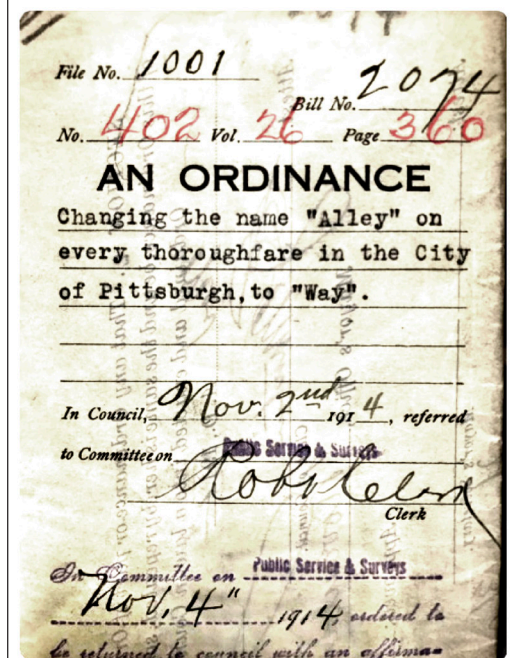 File No. 1001
Bill No. 2074
No. 402 Vol. 26 Page 360
AN ORDINANCE
Changing the name "Alley" on
every thoroughfare in the City
of Pittsburgh, to "Way".
In Council, Nov. 2nd 1914, referred
to Committee on Public Service & Surveys
Robt Clark
Clerk
In Committee on Public Service & Surveys
Nov. 4" 1914, ordered to
be returned to council with an affirma-